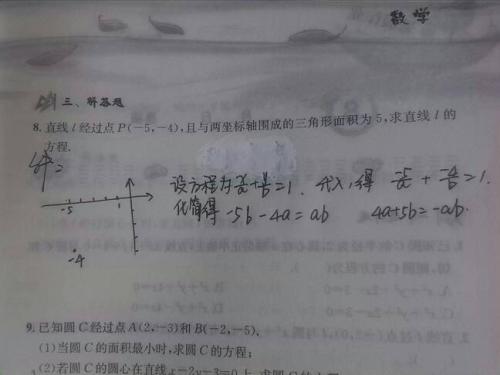 数学
三、解答题
8.直线l经过点P(-5,-4),且与两坐标轴围成的三角形面积为5,求直线l的
方程.
解:
设方程为x/a+y/b=1. 代入,得 -5/a + -4/b =1.
化简得 -5b-4a=ab 4a+5b=-ab.
-5 1
-4
9.已知圆C经过点A(2,-3)和B(-2,-5).
(1)当圆C的面积最小时,求圆C的方程;
(2)若圆C的圆心在直线x-2y-3=0上,求圆C的方程.